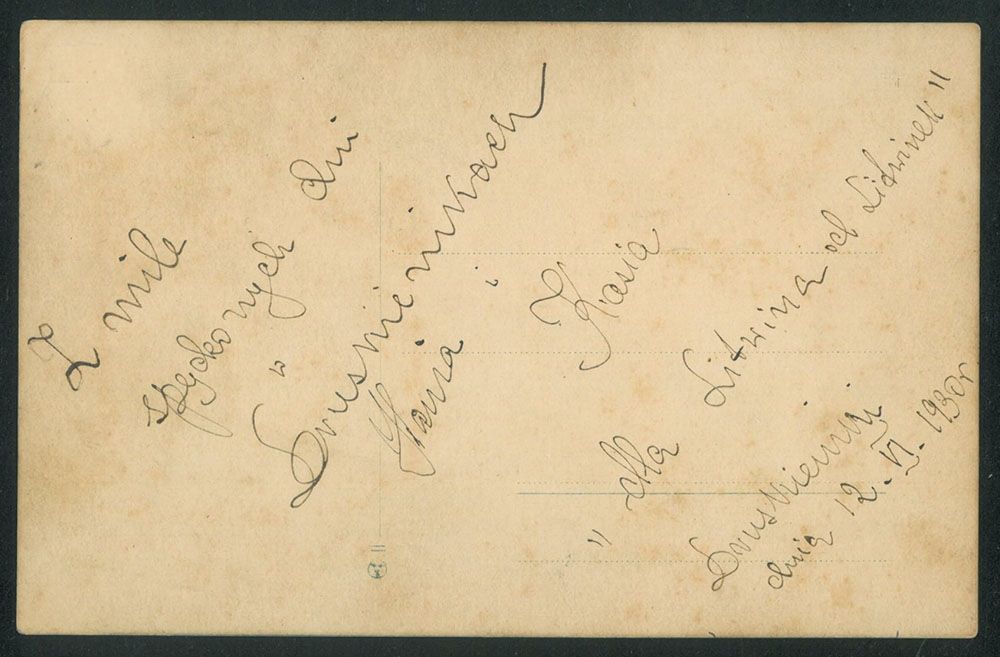 Z mile
spędzonych dni
w
Druskienikach
Hania i Kasia
" dla Litwina od Litwinek "
Druskieniki
dnia 12. VI. 1930r